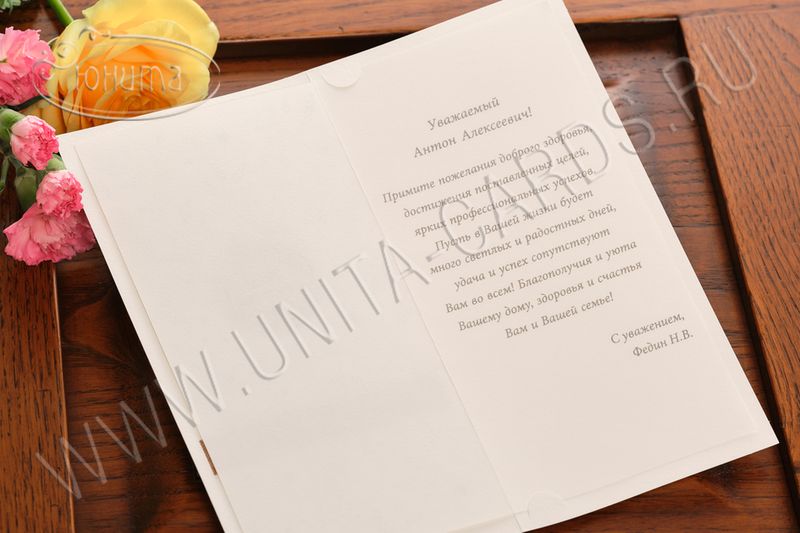 Юнита
Уважаемый
Антон Алексеевич!
Примите пожелания доброго здоровья,
достижения поставленных целей,
ярких профессиональных успехов.
Пусть в Вашей жизни будет
много светлых и радостных дней,
удача и успех сопутствуют
Вам во всем! Благополучия и уюта
Вашему дому, здоровья и счастья
Вам и Вашей семье!
С уважением,
Федин Н.В.
WWW.UNITA-CARDS.RU